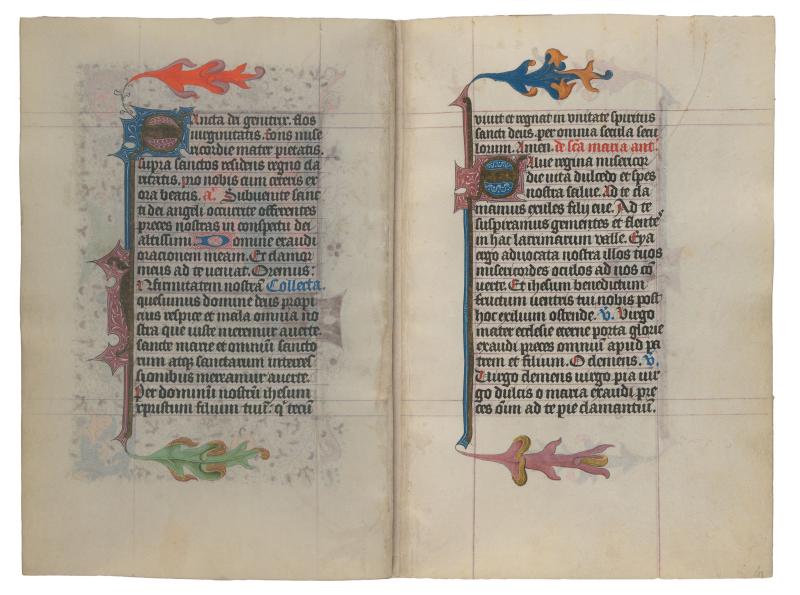 Sancta dei genitrix. flos
uirginitatis. fons mise
ricordie mater pietatis.
supra sanctos residens regno cla
ritatis. pro nobis cum ceteris ex
ora beatis. a᷑. Subuenite sanc
ti dei angeli occurrite offerentes
preces nostras in conspectu dei
altissimi. Domine exaudi
orationem meam. Et clamor
meus ad te ueniat. Oremus:
Infirmitatem nostrā Collecta.
quesumus domine deus propi
cius respice et mala omnia no
stra que iuste meremur auerte.
sancte marie et omniū sancto
rum atq3 sanctarum interces
sionibus mereamur auerte.
Per dominū nostrū ihesum
xpistum filium tuū. q̄ tecū
viuit et regnat in vnitate spiritus
sancti deus. per omnia secula secu
lorum. Amen. de sc̄a maria ant.
Salue regina misericor
die uita dulcedo et spes
nostra salue. Ad te cla
mamus exules filij eue. Ad te
suspiramus gementes et flente
in hac lacrimarum valle. Eya
ergo aduocata nostra illos tuos
misericordes oculos ad nos cō
uerte. Et ihesum benedictum
fructum uentris tui nobis post
hoc exilium ostende. v. Virgo
mater ecclesie eterne porta glorie
exaudi preces omniū apud pa
trem et filium. O clemens. v.
Uirgo clemens uirgo pia uir
go dulcis o maria exaudi pre
ces oīm ad te pie clamantiū.